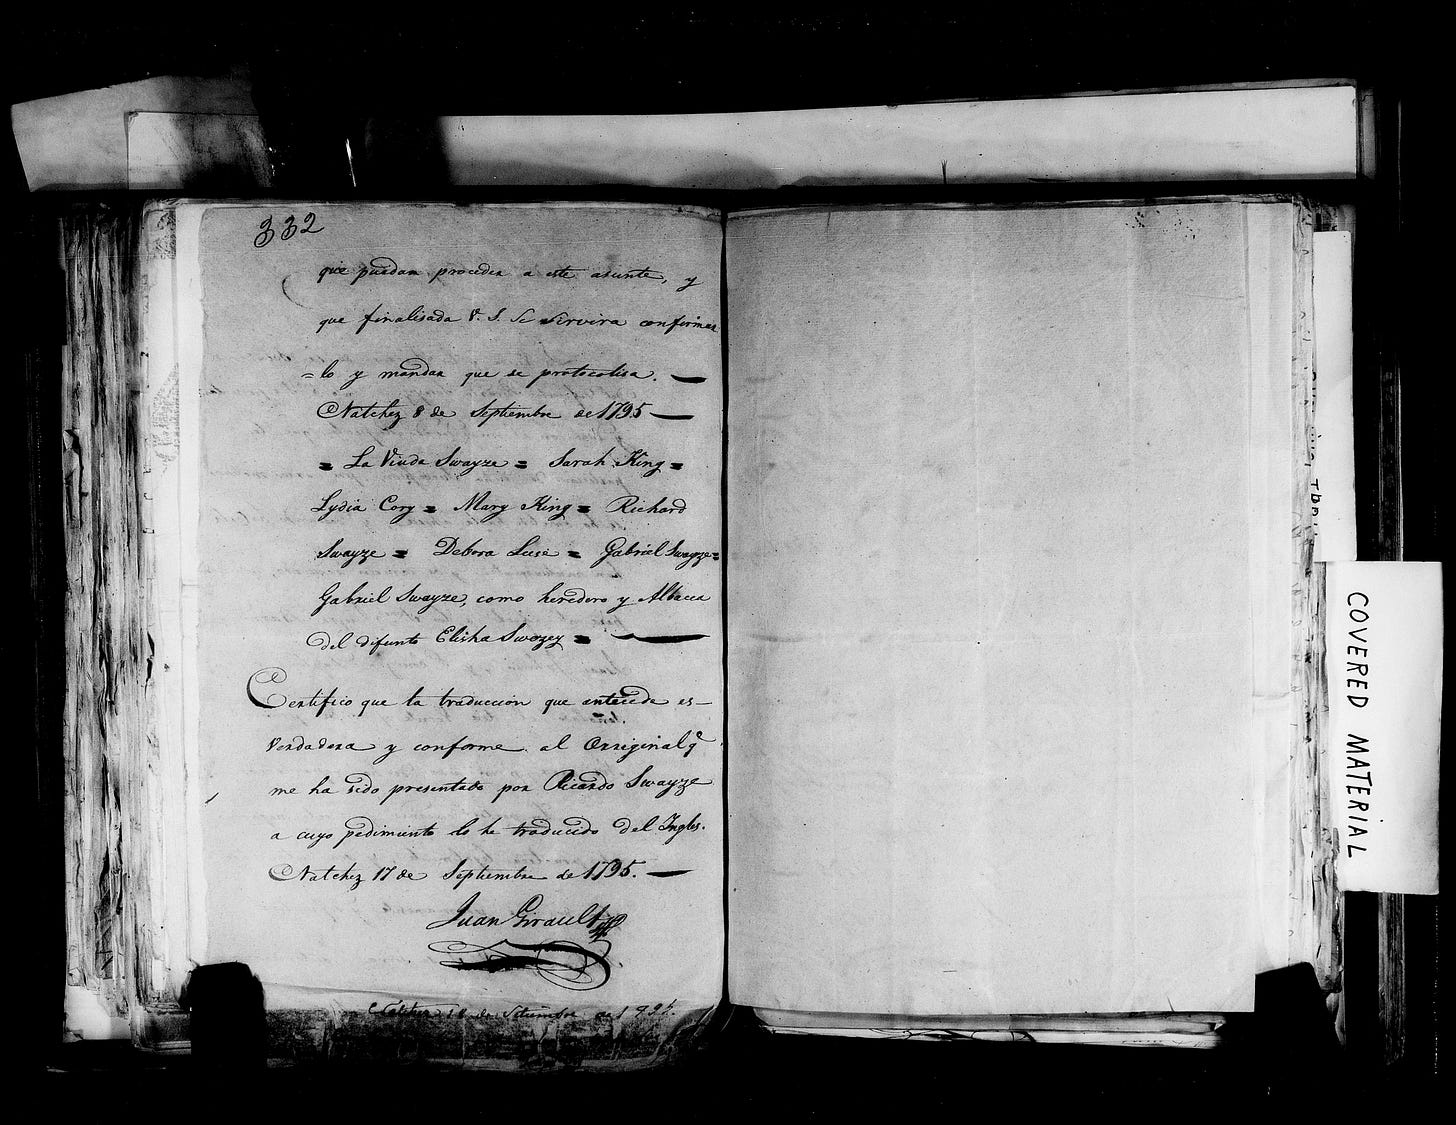 332
que puedan proceder a este asunto, y
que finalisada V. S. Se Servira confirmar
=lo y mandar que se protocolisa.
Natchez 8 de Septiembre de 1795
= La Viuda Swayze = Sarah King =
Lydia Cory = Mary King = Richard
Swayze = Debora Luse = Gabriel Swayze =
Gabriel Swayze, como heredero y Albacea
del difunto Elisha Swozey =
Certifico que la traduccion que antecede es
verdadera y conforme al Orriginal qe
me ha sido presentado por Ricardo Swayze
a cuyo pedimiento lo he traducido del Ingles.
Natchez 17 de Septiembre de 1795.
Juan Girault
Natchez 18 de Setiembre de 1795.
COVERED MATERIAL